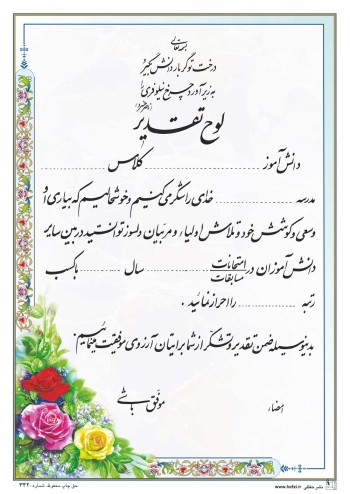 بسمه تعالی
درخت تو گر بار دانش بگیرد
به زیر آورد چرخ نیلوفری را
(ناصرخسرو)
لوح تقدیر
دانش آموز .......................... کلاس ..........................
مدرسه .................. خدای را شکر می کنیم و خوشحالیم که بیاری او
و سعی و کوشش خود و تلاش اولیاء و مربیان دلسوز توانستید در بین سایر
دانش آموزان در امتحانات مسابقات .................. سال .................. با کسب
رتبه .................. را احراز نمائید .
بدینوسیله ضمن تقدیر و تشکر از شما برایتان آرزوی موفقیت می نماییم.
موفق باشی
امضاء
حق چاپ محفوظ شماره: ۳۴۲۰
www.hefzi.ir